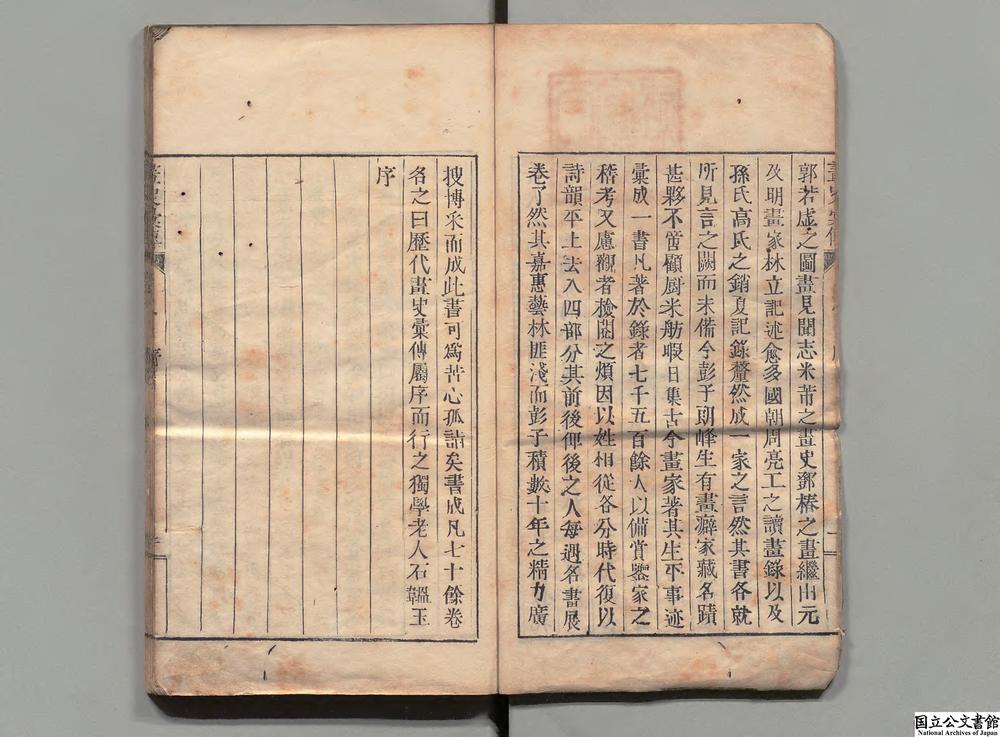 郭若虛之圖畫見聞志米芾之畫史鄧椿之畫繼出元
及明畫家林立記述愈多國朝周亮工之讀畫錄以及
孫氏高氏之銷夏記錄釐然成一家之言然其書各就
所見言之闕而未備今彭子朗峰生有畫癖家藏名蹟
甚夥不啻顧厨米舫暇日集古今畫家著其生平事迹
彙成一書凡著於錄者七千五百餘人以備賞鑒家之
稽考又慮觀者檢閱之煩因以姓相從各分時代復以
詩韻平上去入四部分其前後俾後之人每遇名書展
卷了然其嘉惠藝林匪淺而彭子積數十年之精力廣
搜博采而成此書可為苦心孤詣矣書成凡七十餘卷
名之曰歷代畫史彙傳屬序而行之獨學老人石韞玉
序
国立公文書館
National Archives of Japan